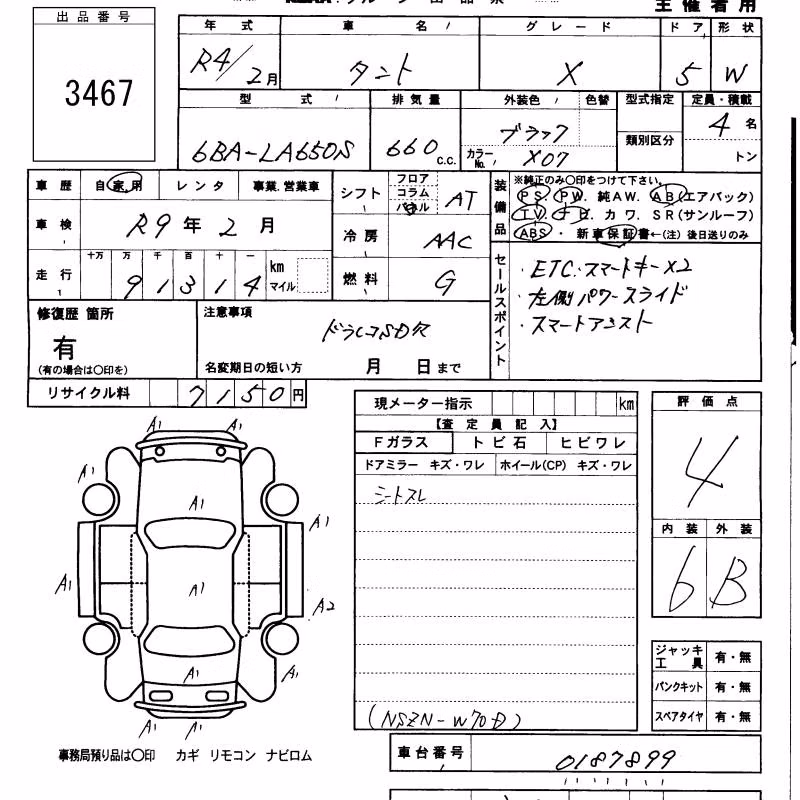 主催者用
出品番号
3467
年式 車名 グレード ドア 形状
R4/2月 タント X 5 W
型式 排気量 外装色 色替 型式指定 定員・積載
6BA-LA650S 660c.c. ブラック 類別区分 4名
カラーNo. X07 トン
車歴 自家用 レンタ 事業.営業車
車検 R9年2月
走行 十万 万 千 百 十 一
91314 km マイル
シフト フロア コラム パネル AT
冷房 AAC
燃料 G
装備品 ※純正のみ〇印をつけて下さい。
PS. PW. 純AW. AB(エアバック)
TV. ナビ. カワ. SR(サンルーフ)
ABS ・ 新車保証書←(注)後日送りのみ
セールスポイント
・ETC・スマートキーX2
・左側パワースライド
・スマートアシスト
修復歴 箇所
有
(有の場合は〇印を)
注意事項
名変期日の短い方 月 日まで
リサイクル料 7150円
現メーター指示 km
【査定員記入】
Fガラス トビ石 ヒビワレ
ドアミラー キズ・ワレ ホイール(CP) キズ・ワレ
シートスレ
(NSZN-W70D)
評価点
4
内装 外装
6 B
ジャッキ工具 有・無
パンクキット 有・無
スペアタイヤ 有・無
A1 A1
A1
A1
A1
A1
A1
A2
A1
A1
A1 A1
事務局預り品は〇印 カギ リモコン ナビロム
車台番号 0187899